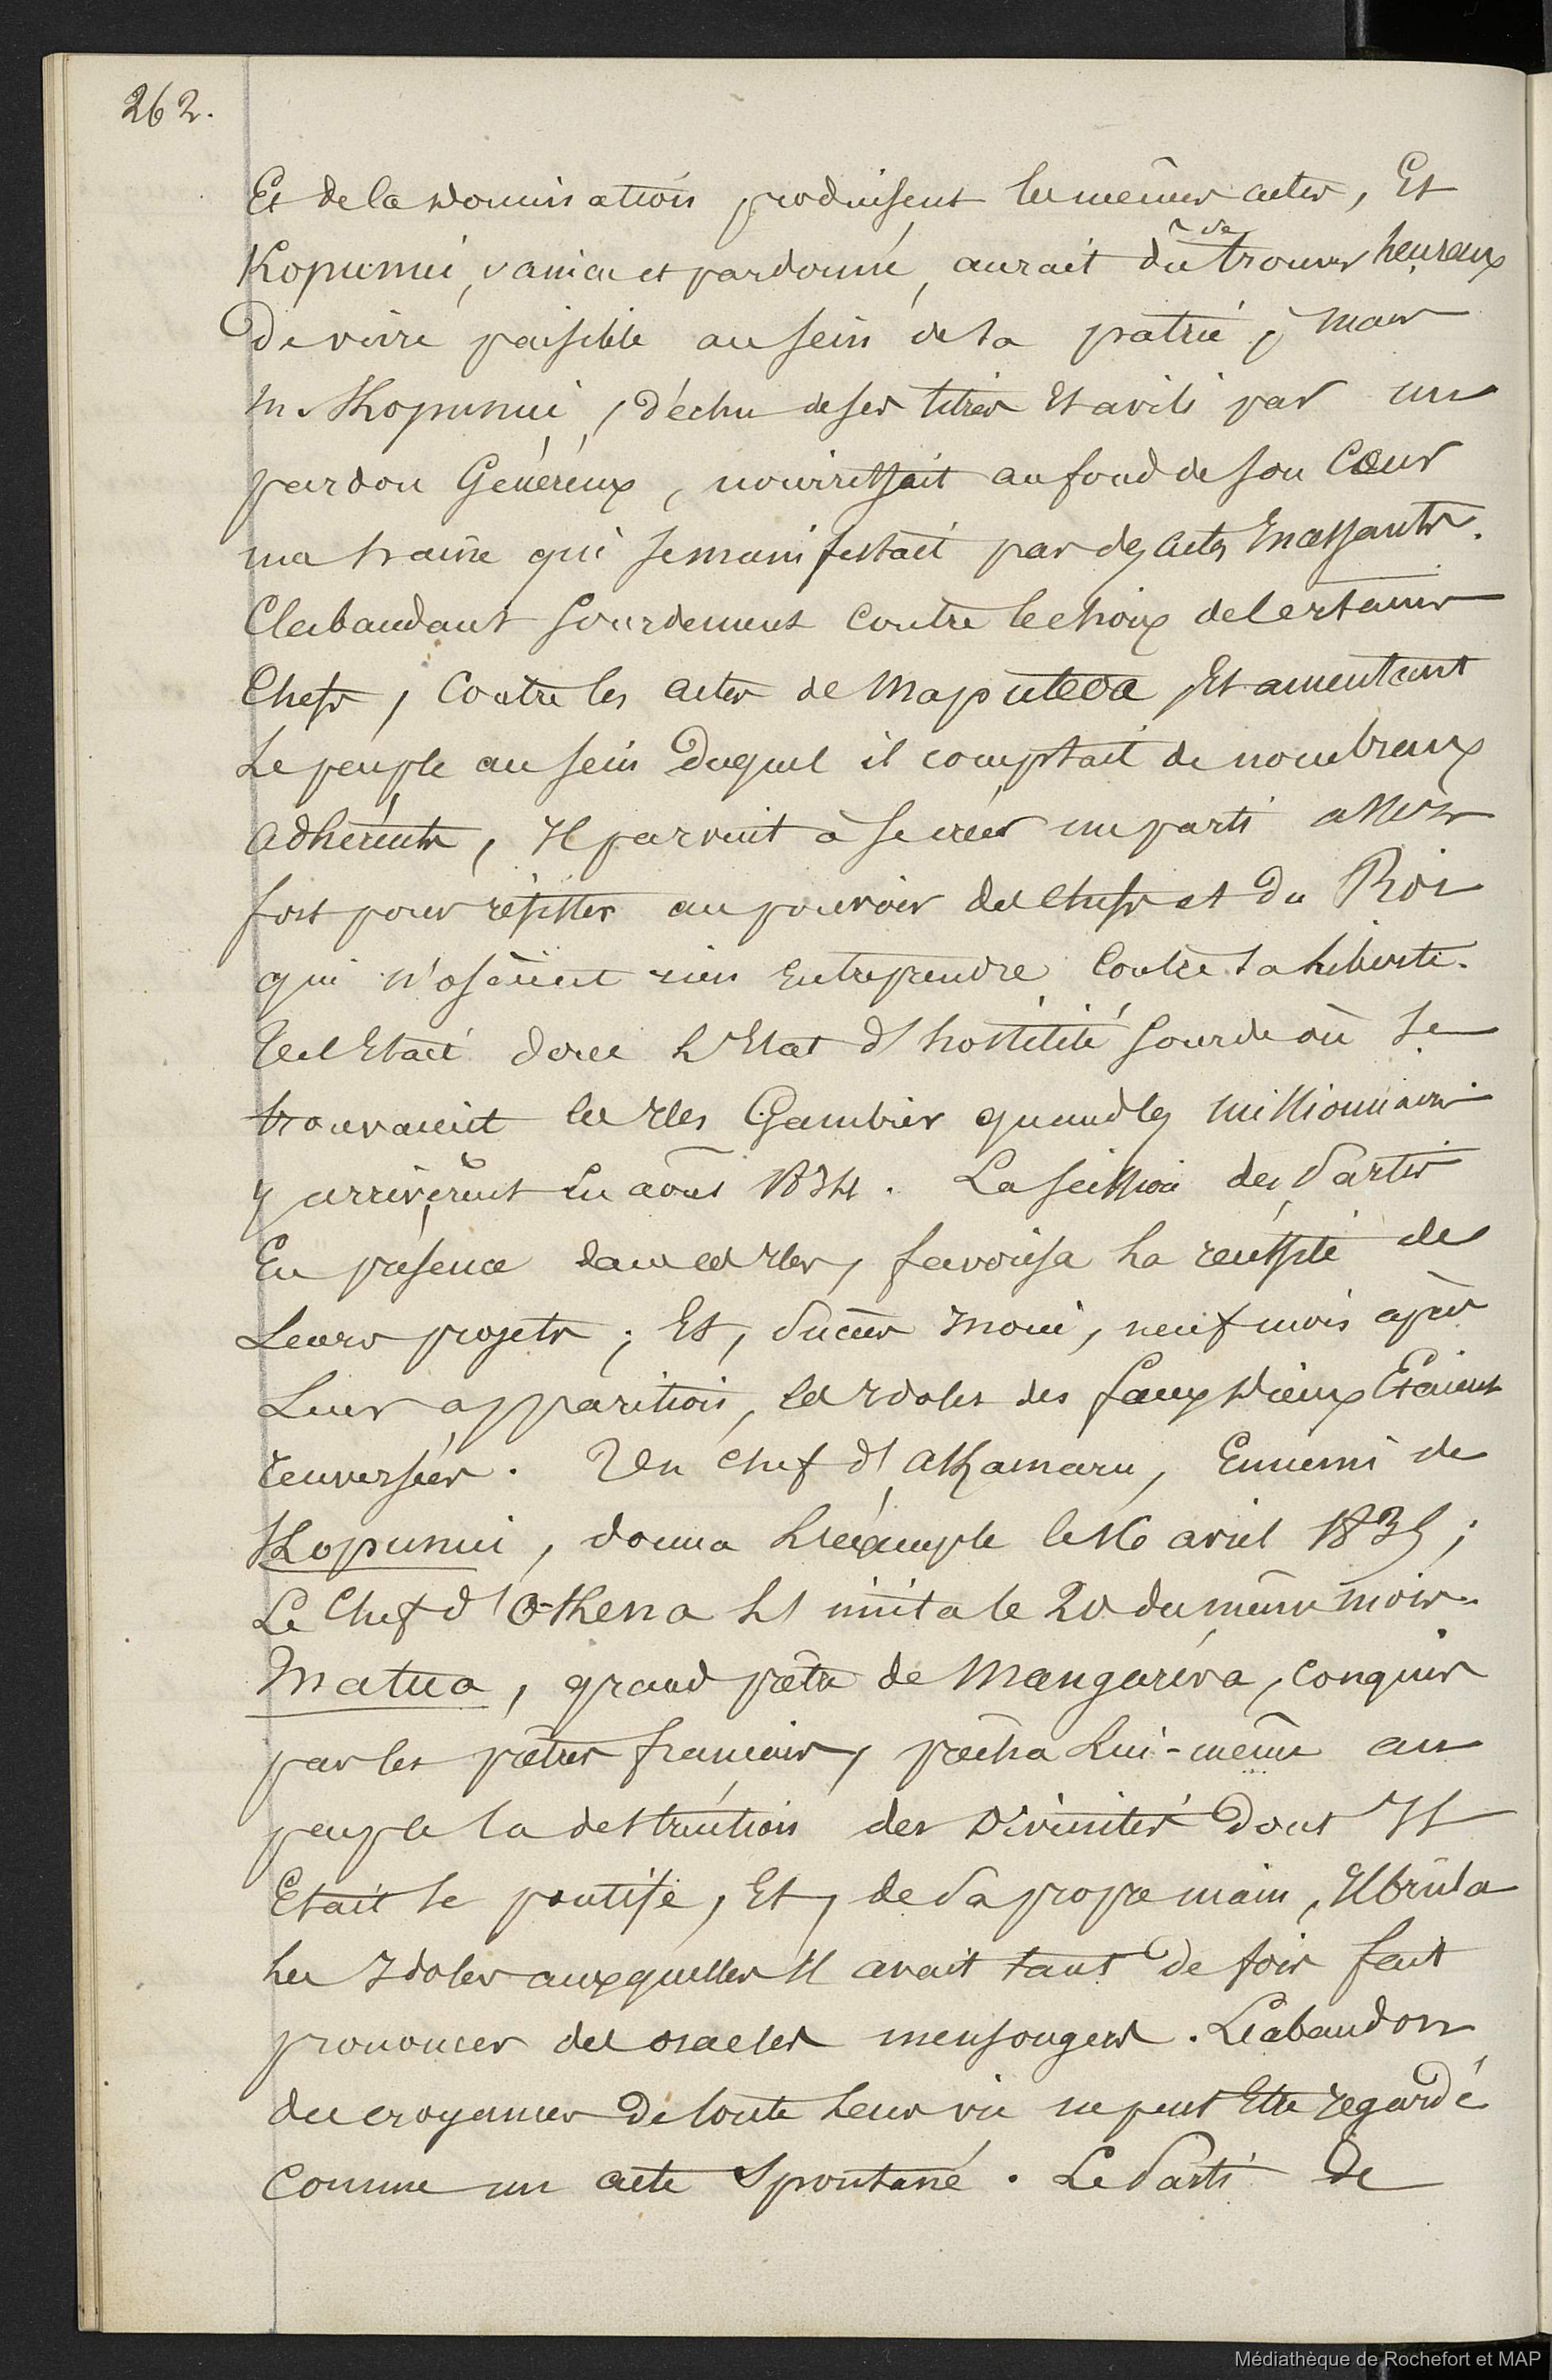 262.
Et de la domination produisent les mêmes actes, Et
Kopunui, vaincu et pardonné, aurait du se trouver heureux
De vivre paisible au sein de sa patrie ; mais
M. Kopunui, déchu de ses titres Et avili par un
pardon Généreux, nourrissait au fond de son Cœur
une haine qui se manifestait par des actes Incessants.
Clabaudant Sourdement Contre le choix de Certains
Chefs, Contre les actes de Maputeoa, Et ameutant
Le peuple au sein Duquel il comptait de nombreux
adhérents, Il parvint à se créer un parti assez
fort pour résister au pouvoir des chefs et du Roi
qui n'osèrent rien Entreprendre Contre sa Liberté.
Tel Etait donc L'Etat d'hostilité Sourde où Se
trouvaient les Iles Gambier quand les missionnaires
y arrivèrent En août 1834. La scission des Partis
En présence dans ces Iles, favorisa La réussite de
Leurs projets ; Et, Succès Inoui, neuf mois après
Leur apparition, les Idoles des faux Dieux Etaient
renversées. Un chef d'Akamaru, Ennemi de
Kopunui, donna L'exemple le 16 avril 1835 ;
Le Chef d'O-Kena L'imita le 20 du même mois.
Matua, grand prêtre de Mangaréva, conquis
par les prêtres français, prêcha Lui-même au
peuple la destruction des Divinités Dont Il
Etait le pontife, Et, de Sa propre main, Il brûla
Les Idoles auxquelles Il avait tant De fois fait
prononcer des oracles mensongers. L'abandon
des croyances De toute Leur vie ne peut Etre regardé
Comme un acte Spontané. Le Parti De
Médiathèque de Rochefort et MAP